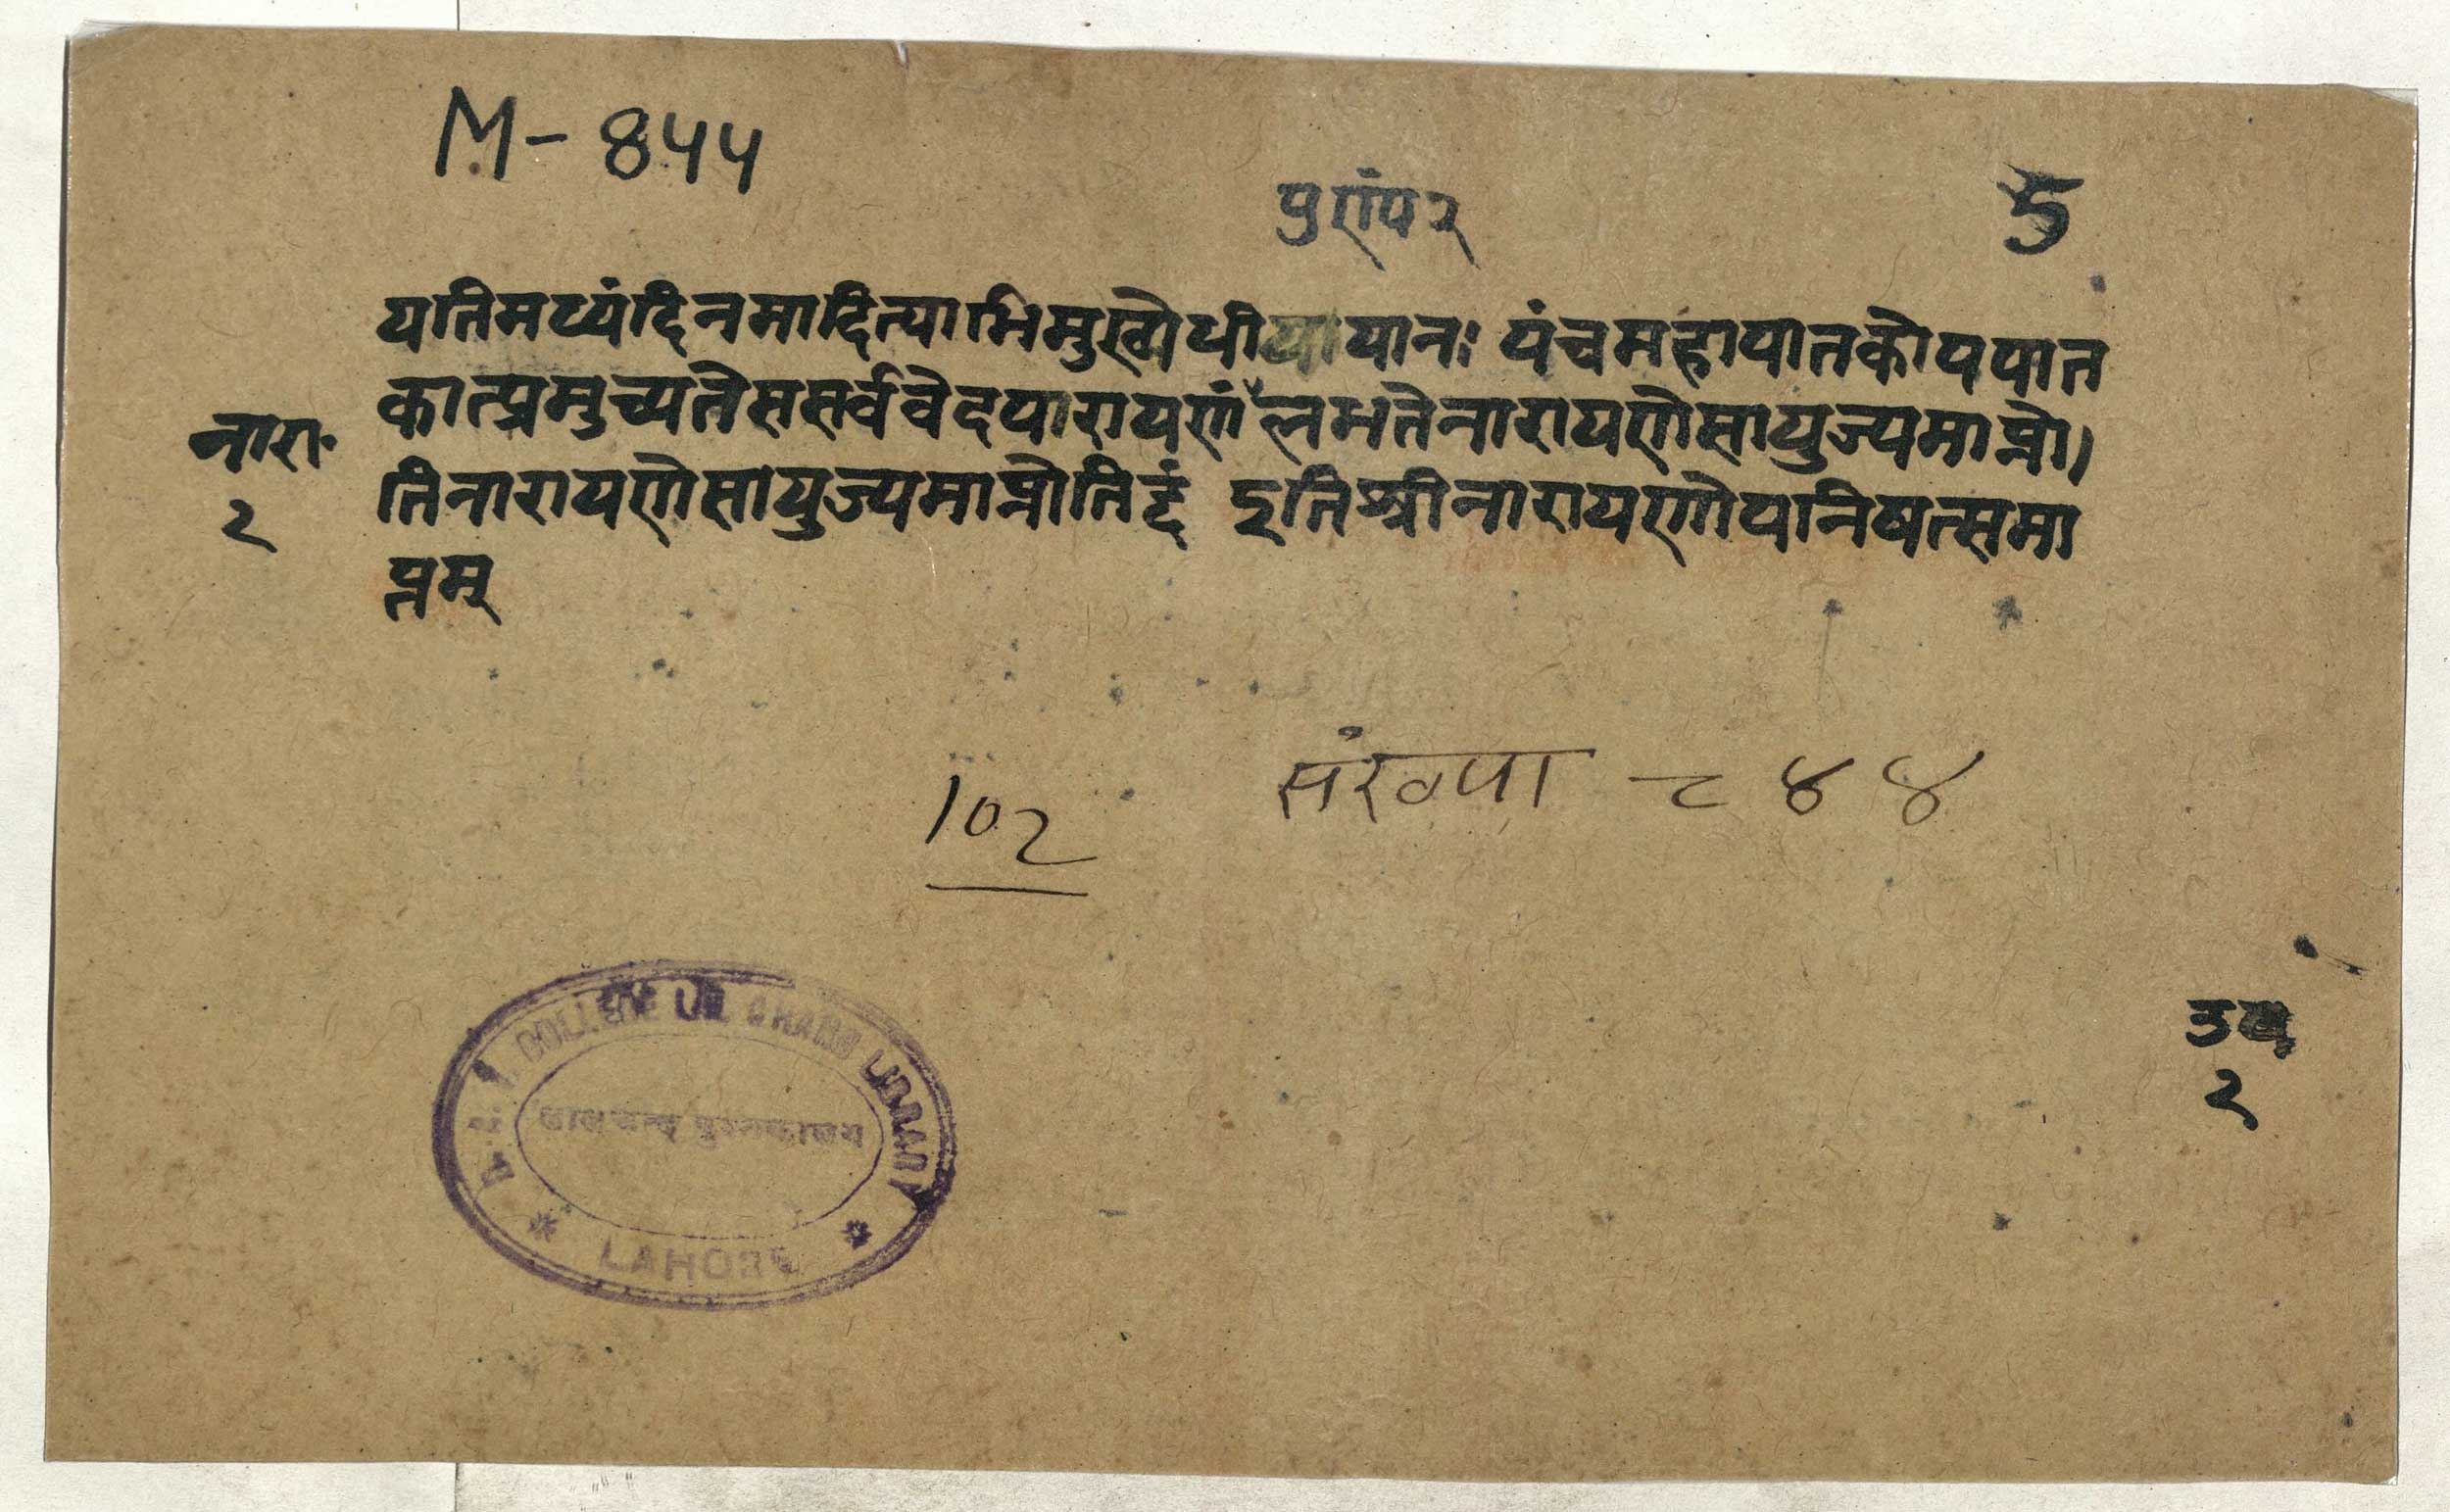 M-844
5
यतिमध्यंदिनमादित्याभिमुखोधीयानः पंचमहापातकोपपात
कात्प्रमुच्यतेससर्ववेदपारायणंलभतेनारायणेसायुज्यमाप्नो।
तिनारायणेसायुज्यमाप्नोति इतिश्रीनारायणोपनिषत्समा
प्तम्
नारा॰
२
संख्या ८४४
102
उप
२
D. A. V. COLLEGE LAL CHAND LIBRARY
लालचन्द पुस्तकालय
LAHORE